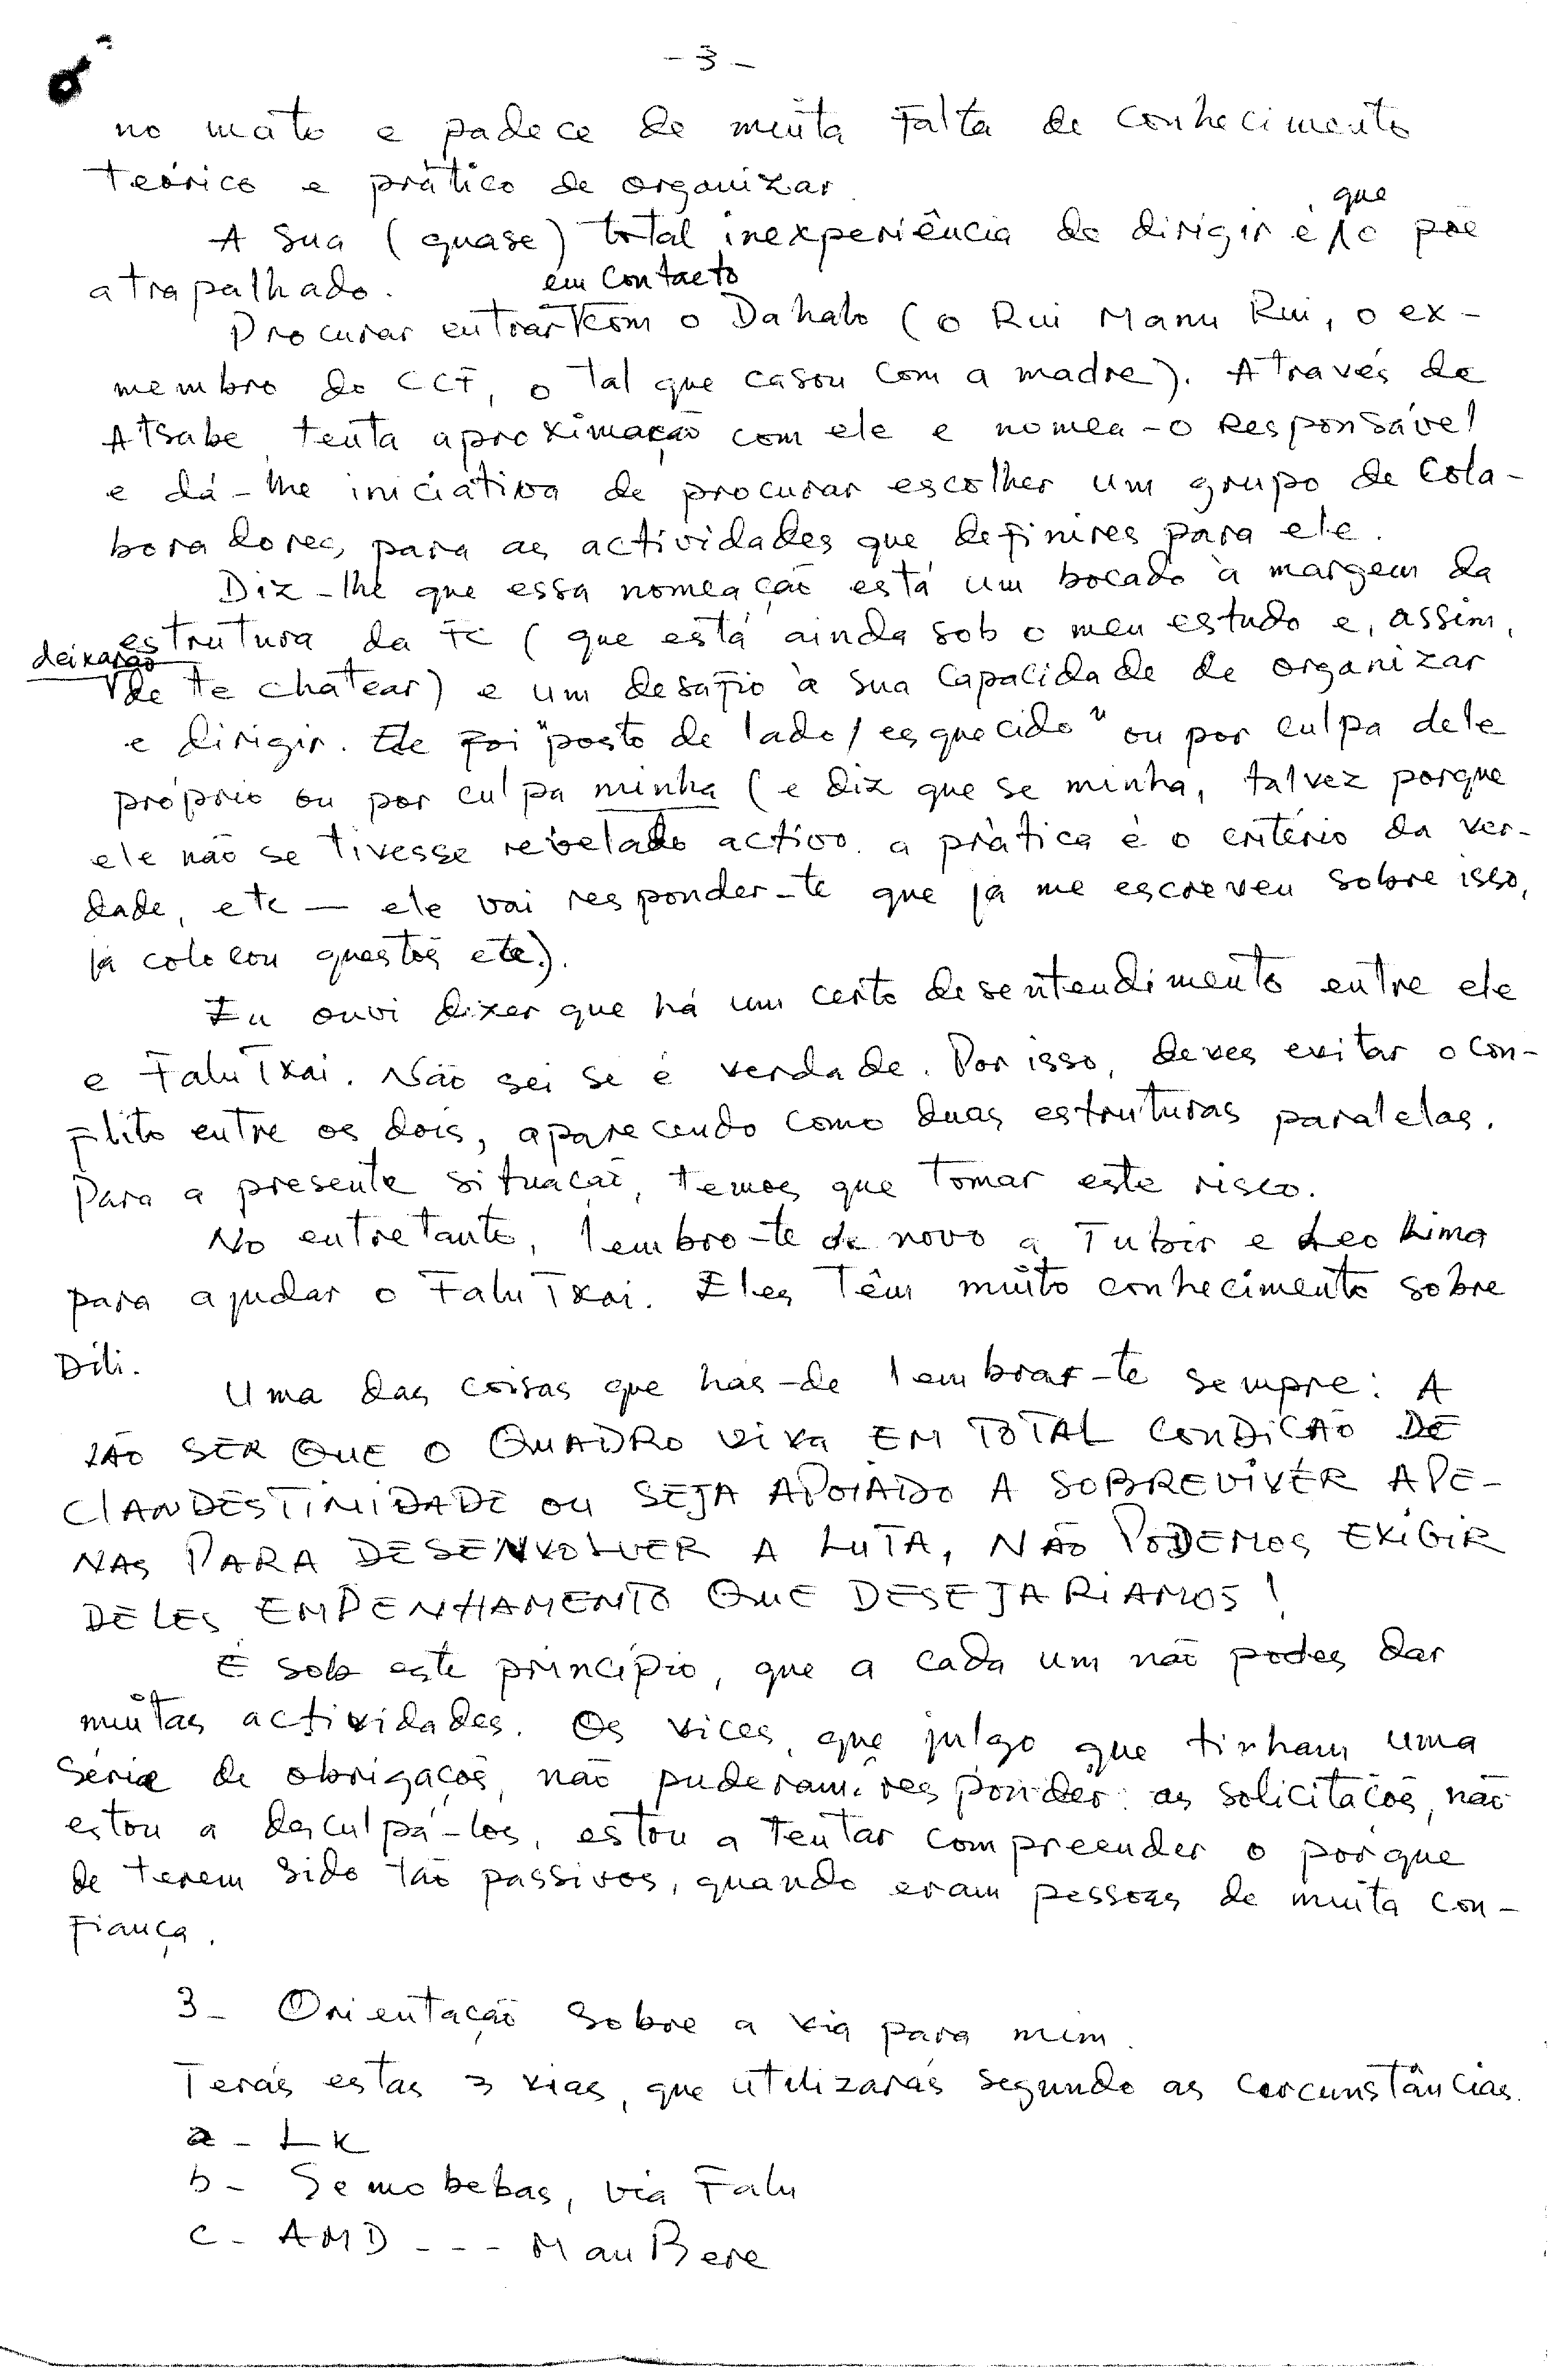 - 3 -
no mato e padece de muita falta de conhecimento
teórico e prático de organizar.
A sua (quase) total inexperiência de dirigir é que o põe
atrapalhado.
Procurar entrar em contacto com o Dahalo (o Rui Manu Rui, o ex-
membro do CCF, o tal que casou com a madre). Através de
Atsabe, tenta aproximação com ele e nomea-o Responsável
e dá-lhe iniciativa de procurar escolher um grupo de cola-
boradores, para as actividades que definires para ele.
Diz-lhe que essa nomeação está um bocado à margem da
estrutura da FC (que está ainda sob o meu estudo e, assim,
deixarão de te chatear) e um desafio à sua capacidade de organizar
e dirigir. Ele foi "posto de lado/esquecido" ou por culpa dele
próprio ou por culpa minha (e diz que se minha, talvez porque
ele não se tivesse revelado activo. a prática é o critério da ver-
dade, etc — ele vai responder-te que já me escreveu sobre isso,
já colocou questões etc.).
Eu ouvi dizer que há um certo desentendimento entre ele
e FaluTxai. Não sei se é verdade. Por isso, deves evitar o con-
flito entre os dois, aparecendo como duas estruturas paralelas.
Para a presente situação, temos que tomar este risco.
No entretanto, lembro-te de novo a Tubir e Leo Lima
para ajudar o FaluTxai. Eles têm muito conhecimento sobre
Dili.
Uma das coisas que hás-de lembrar-te sempre: A
NÃO SER QUE O QUADRO VIVA EM TOTAL CONDIÇÃO DE
CLANDESTINIDADE OU SEJA APOIADO A SOBREVIVER APE-
NAS PARA DESENVOLVER A LUTA, NÃO PODEMOS EXIGIR
DELES EMPENHAMENTO QUE DESEJARIAMOS!
É sob este princípio, que a cada um não podes dar
muitas actividades. Os vices, que julgo que tinham uma
série de obrigações, não puderam responder as solicitações, não
estou a desculpá-los, estou a tentar compreender o porque
de terem sido tão passivos, quando eram pessoas de muita con-
fiança.
3- Orientação sobre a via para mim.
Terás estas 3 vias, que utilizarás segundo as circunstâncias.
a - LK
b - Semobebas, via Falu
c - AMD - - - MauBere